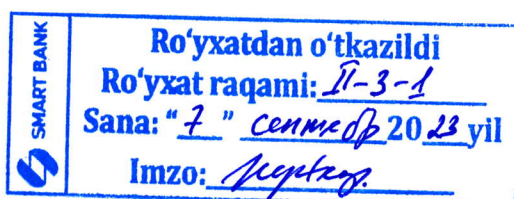 SMART BANK
Ro‘yxatdan o‘tkazildi
Ro‘yxat raqami: II-3-1
Sana: “7” сентябр 2023 yil
Imzo: